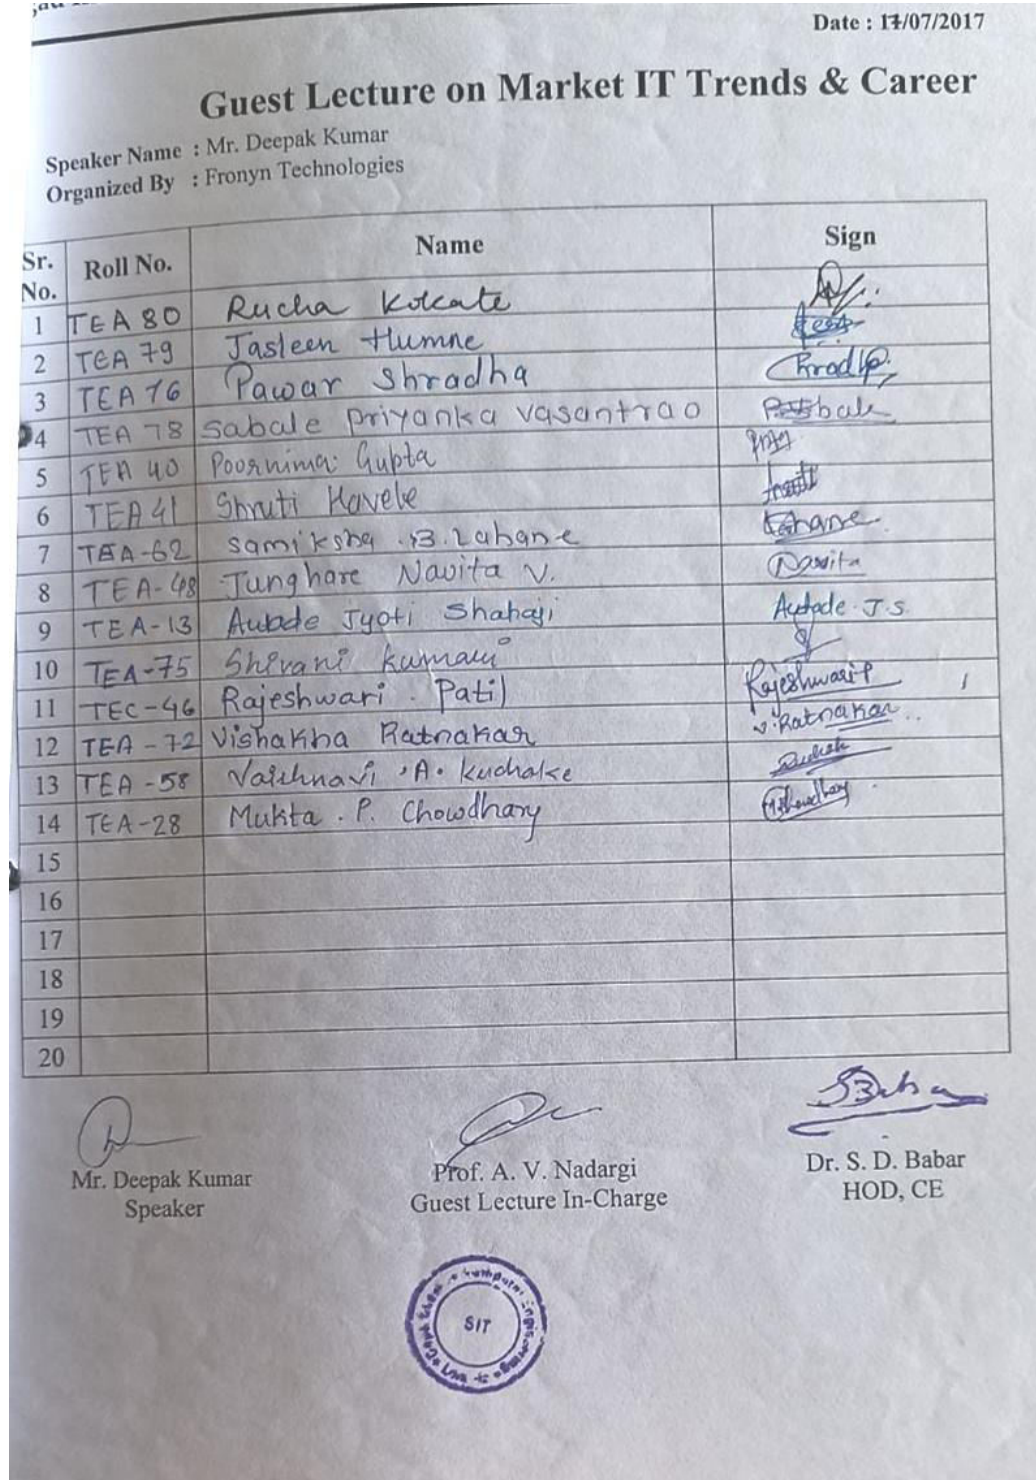 Date : 17/07/2017
Guest Lecture on Market IT Trends & Career
Speaker Name : Mr. Deepak Kumar
Organized By : Fronyn Technologies
Sr. No. Roll No. Name Sign
1 TEA 80 Rucha Kokate
2 TEA 79 Jasleen Humne
3 TEA 76 Pawar Shradha
4 TEA 78 Sabale Priyanka Vasantrao
5 TEA 40 Poornima Gupta
6 TEA 41 Shruti Havele
7 TEA-62 Samiksha .B. Lahane Lahane
8 TEA-48 Junghare Navita V. Navita
9 TEA-13 Autade Jyoti Shahaji Autade J.S.
10 TEA-75 Shivani Kumari
11 TEC-46 Rajeshwari . Patil RajeshwariP
12 TEA-72 Vishakha Ratnakar V. Ratnakar
13 TEA-58 Vaishnavi .A. Kuchake
14 TEA-28 Mukta . P. Chowdhary MChowdhary
15
16
17
18
19
20
Mr. Deepak Kumar
Speaker
Prof. A. V. Nadargi
Guest Lecture In-Charge
Dr. S. D. Babar
HOD, CE
SIT